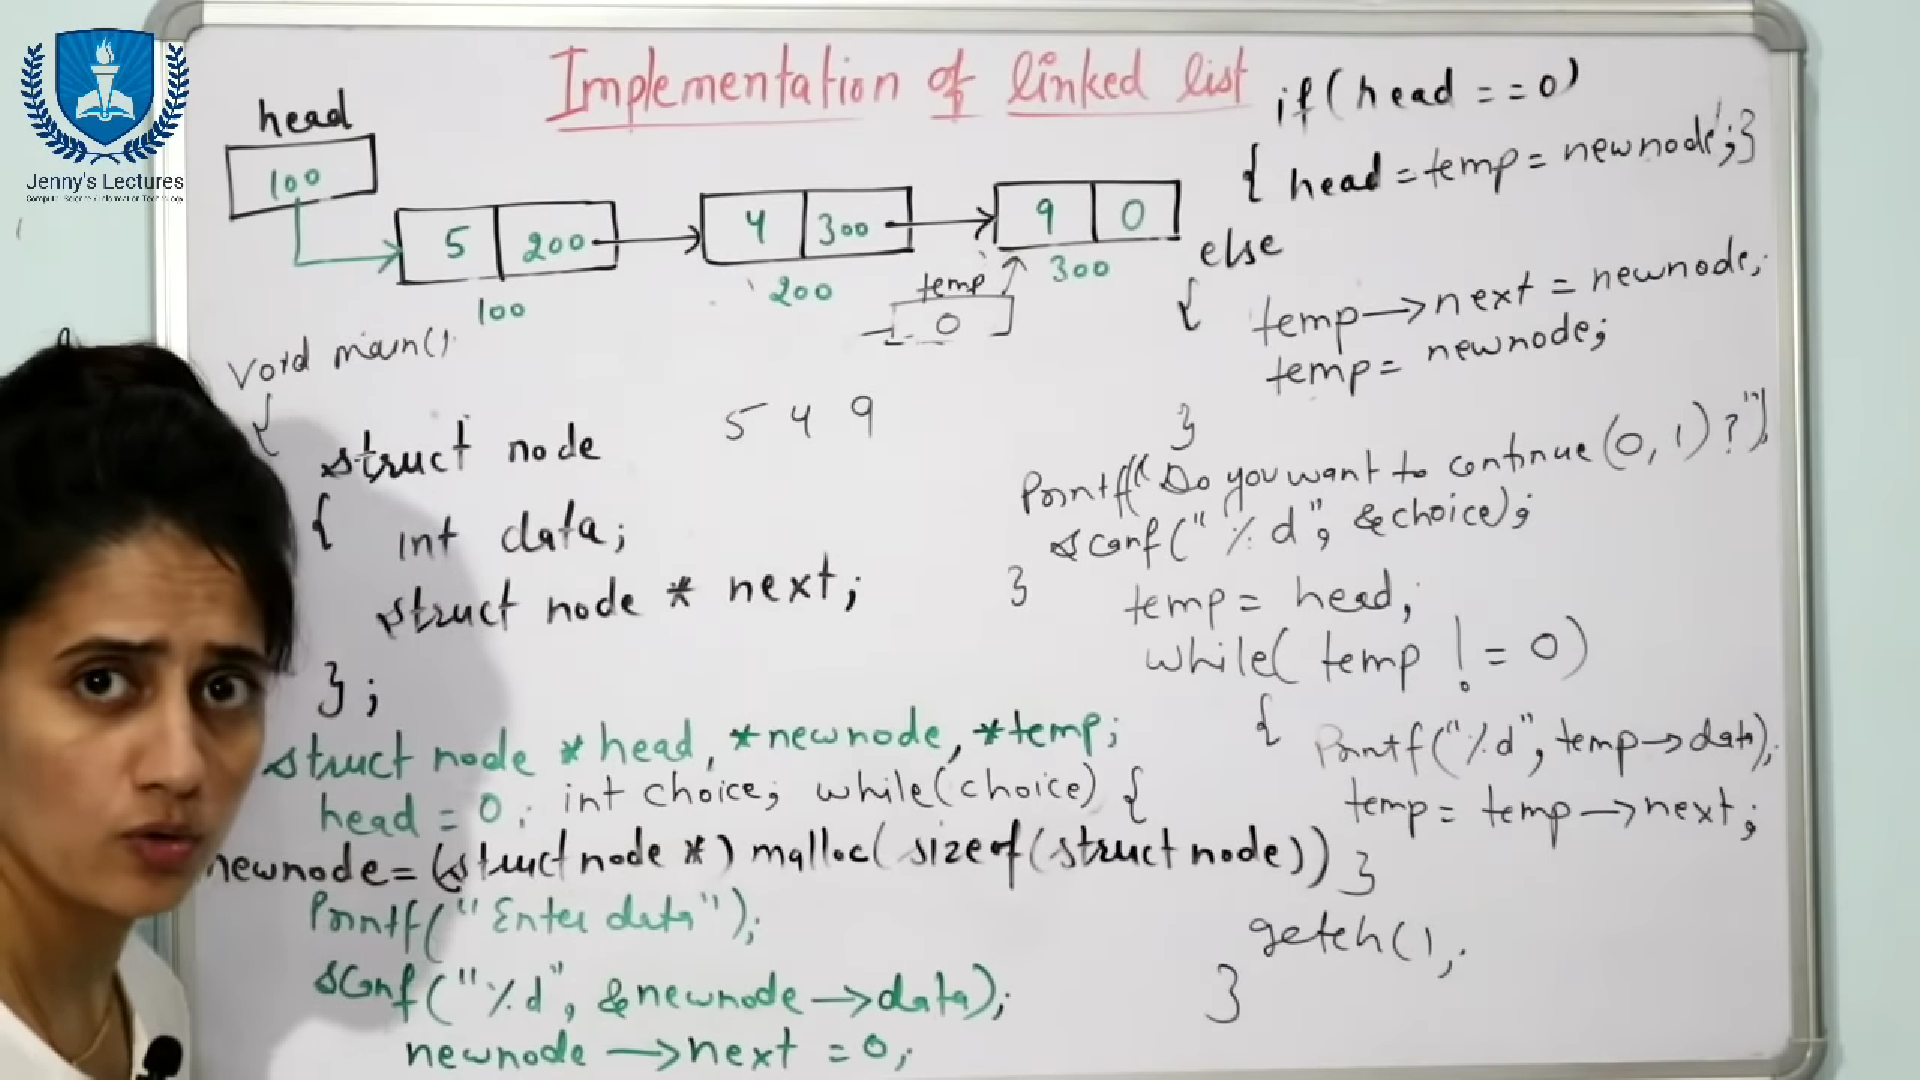 Jenny's Lectures
Computer Science & Information Technology
Implementation of linked list
head
100
5 200
4 300
9 0
100
200
300
temp
0
5 4 9
void main()
{
struct node
{ int data;
struct node * next;
};
struct node *head, *newnode, *temp;
head = 0; int choice; while(choice) {
newnode = (struct node *) malloc( sizeof(struct node))
Printf("Enter data");
scanf("%d", &newnode->data);
newnode ->next = 0;
if(head == 0)
{ head = temp = newnode;}
else
{ temp->next = newnode;
temp = newnode;
}
Printf("Do you want to continue (0,1)?");
scanf("%d", &choice);
}
temp = head;
while( temp != 0)
{ Printf("%d", temp->data);
temp = temp->next;
}
getch();
}